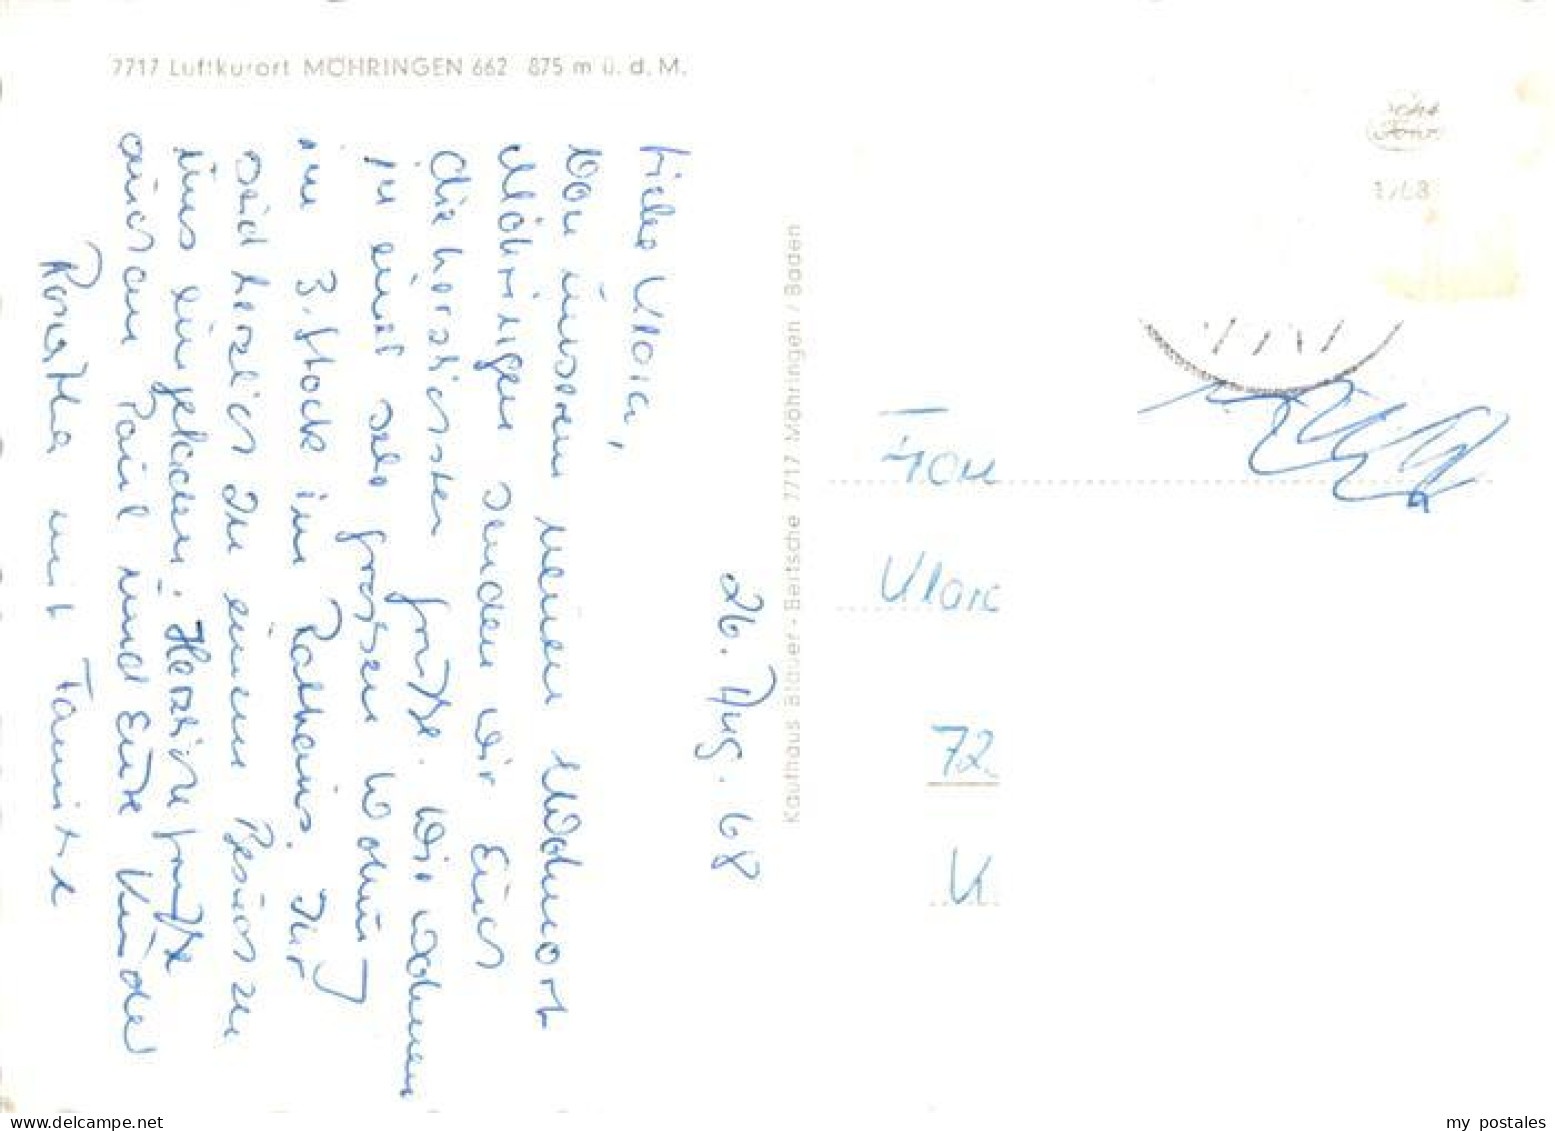 7717 Luftkurort MÖHRINGEN 662 875 m ü. d. M.
26. Aug. 68
Liebe Klara,
von unserem neuen Wohnort
Möhringen senden wir Euch
die herzlichsten Grüße. Wir wohnen
in einer sehr grossen Wohnung
im 3. Stock im Rathaus. Ihr
seid herzlich zu einem Besuch zu
uns eingeladen. Herzliche Grüße
auch an Paul und Eure Kinder
Familie
Kaufhaus Blauer-Bertsche 7717 Möhringen / Baden
Frau
Klara
72
K
my postales
www.delcampe.net